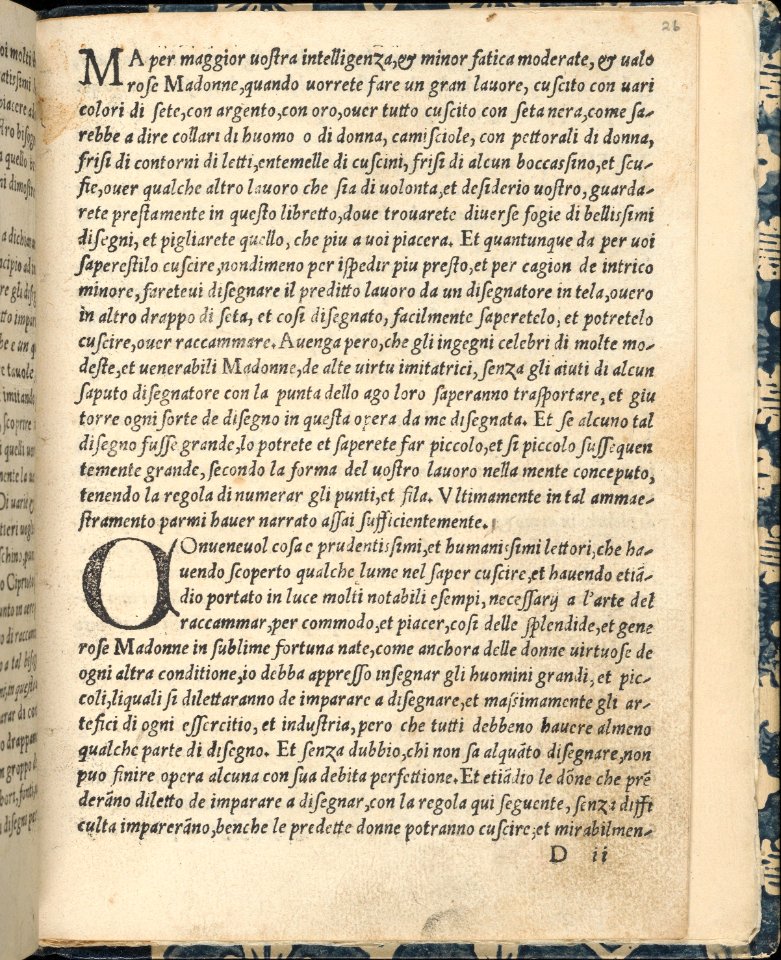 26
MA per maggior uostra intelligenza,& minor fatica moderate, & ualo
rose Madonne,quando uorrete fare un gran lauore, cuscito con uari
colori di sete,con argento,con oro,ouer tutto cuscito con seta nera,come sa-
rebbe a dire collari di huomo o di donna, camisciole, con pettorali di donna,
frisi di contorni di letti,entemelle di cuscini, frisi di alcun boccassino,et scu-
fie,ouer qualche altro lauoro che sia di uolonta,et desiderio uostro, guarda-
rete prestamente in questo libretto,doue trouarete diuerse fogie di bellissimi
disegni, et pigliarete quello, che piu a uoi piacera. Et quantunque da per uoi
saperestilo cuscire,nondimeno per ispedir piu presto,et per cagion de intrico
minore,fareteui disegnare il preditto lauoro da un disegnatore in tela,ouero
in altro drappo di seta, et cosi disegnato, facilmente saperetelo, et potretelo
cuscire,ouer raccammare. Auenga pero,che gli ingegni celebri di molte mo-
deste,et uenerabili Madonne,de alte uirtu imitatrici, senza gli aiuti di alcun
saputo disegnatore con la punta dello ago loro saperanno trasportare, et giu
torre ogni sorte de disegno in questa opera da me disegnata. Et se alcuno tal
disegno fusse grande,lo potrete et saperete far piccolo,et si piccolo fusse,quen
temente grande, secondo la forma del uostro lauoro nella mente conceputo,
tenendo la regola di numerar gli punti,et fila. Vltimamente in tal ammae-
stramento parmi hauer narrato assai sufficientemente.
COnueneuol cosa e prudentissimi,et humanissimi lettori,che ha-
uendo scoperto qualche lume nel saper cuscire,et hauendo etiā-
dio portato in luce molti notabili esempi, necessarij a l'arte del
raccammar,per commodo,et piacer,cosi delle splendide,et gene
rose Madonne in sublime fortuna nate,come anchora delle donne uirtuose de
ogni altra conditione,io debba appresso insegnar gli huomini grandi,et pic-
coli,liquali si dilettaranno de imparare a disegnare,et massimamente gli ar-
tefici di ogni essercitio, et industria, pero che tutti debbeno hauere almeno
qualche parte di disegno. Et senza dubbio,chi non sa alquāto disegnare,non
puo finire opera alcuna con sua debita perfettione. Et etiādio le dōne che prē
derāno diletto de imparare a disegnar,con la regola qui seguente, senza diffi
culta imparerāno,benche le predette donne potranno cuscire,et mirabilmen-
D ii